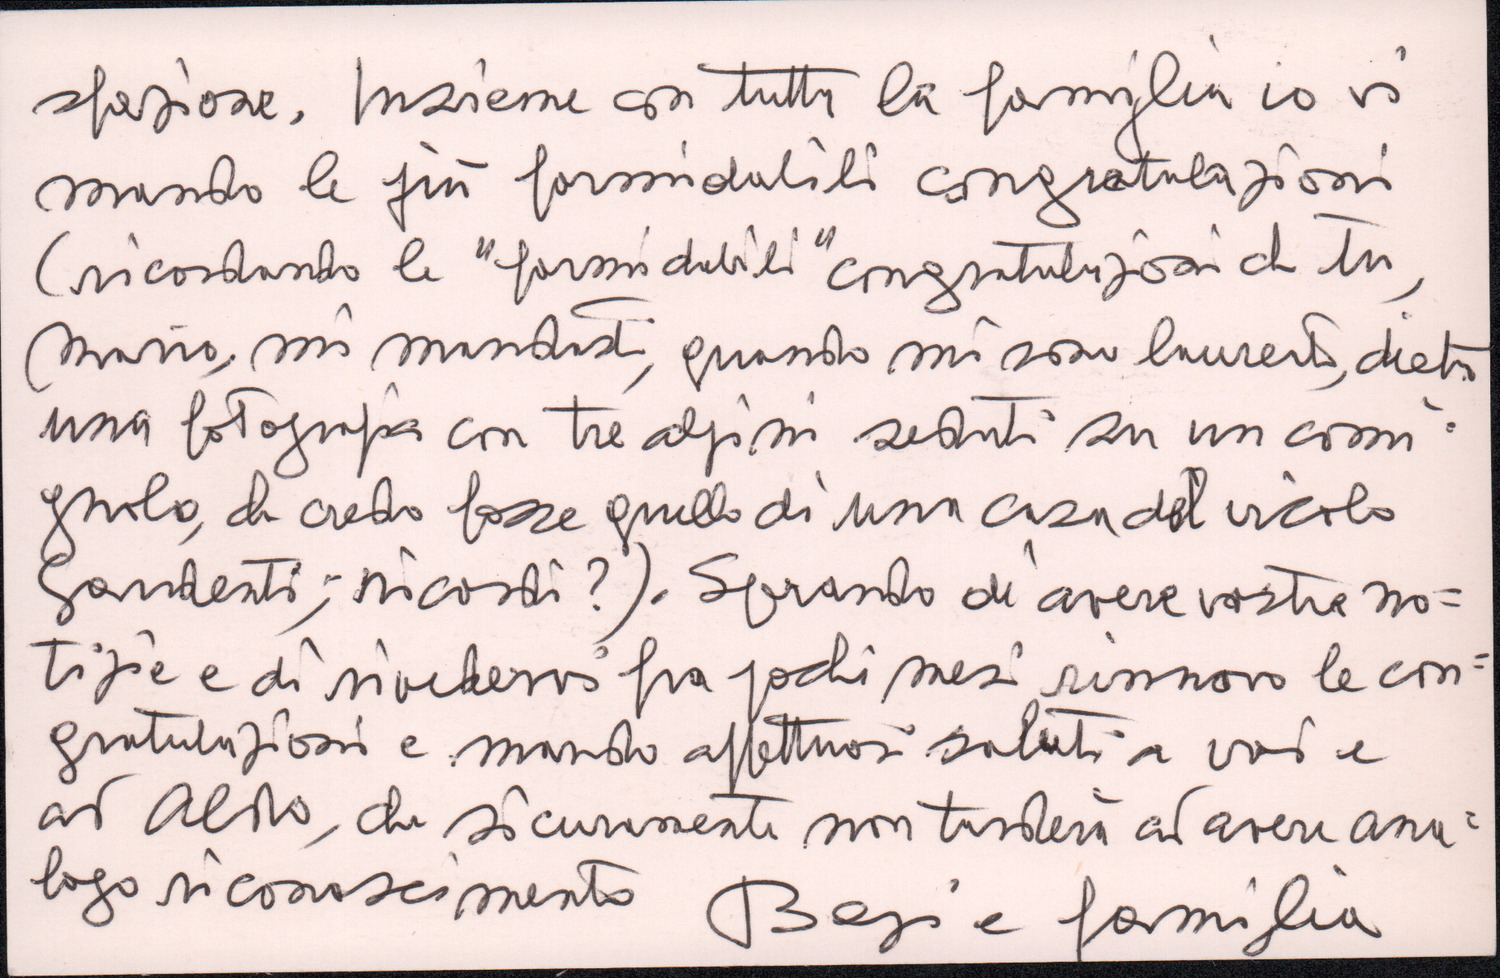 sfazione. Insieme con tutta la famiglia io vi
mando le più formidabili congratulazioni
(ricordando le "formidabili" congratulazioni che tu,
Mario, mi mandasti, quando mi sono laureato, dietro
una fotografia con tre alpini seduti su un comi=
gnolo, che credo fosse quello di una casa del vicolo
Gaudenti; ricordi?). Sperando di avere vostre no=
tizie e di rivedervi fra pochi mesi rinnovo le con=
gratulazioni e mando affettuosi saluti a voi e
ad Aldo, che sicuramente non tarderà ad avere ana=
logo riconoscimento
Baci e famiglia